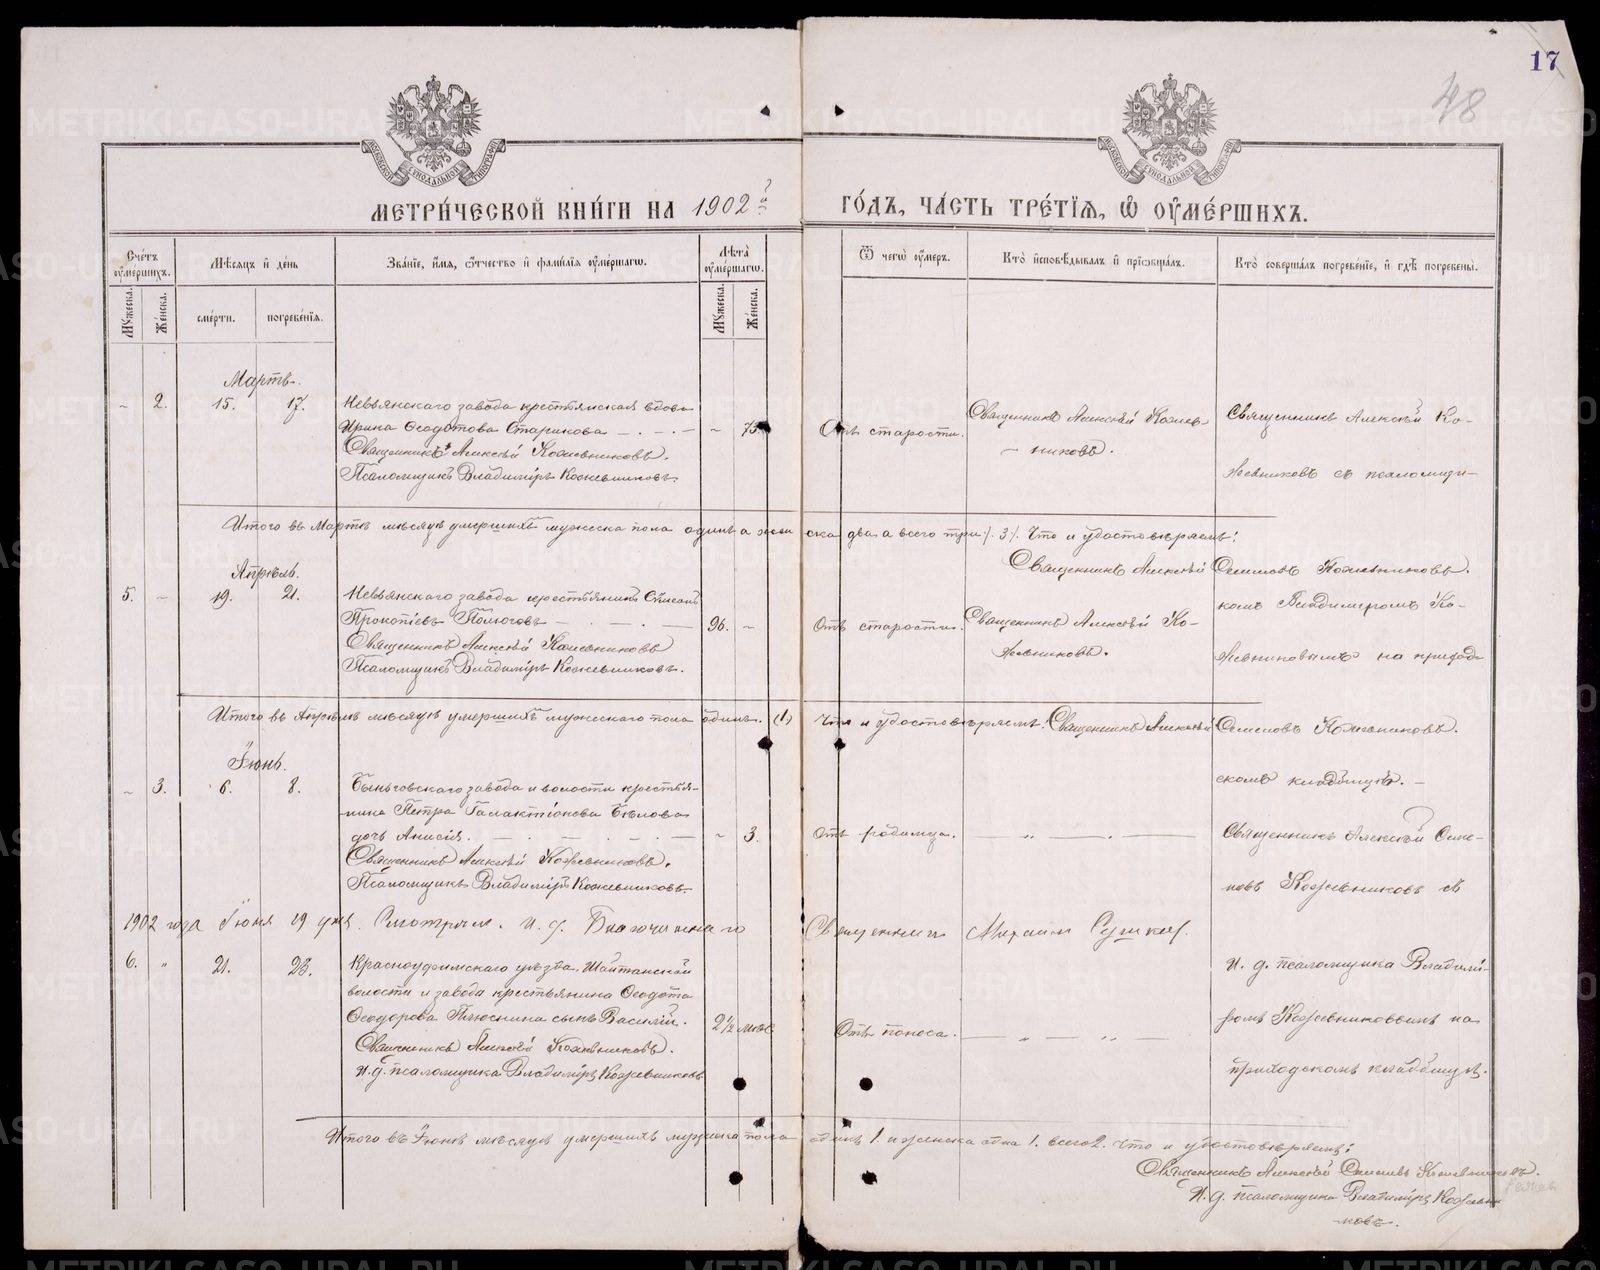 17
48
МЕТРИ́ЧЕСКОЙ КНИ́ГИ НА 1902 й ГО́ДЪ, ЧА́СТЬ ТРЕ́ТІѦ, Ѡ ОУМЕ́РШИХЪ.
Сче́тъ оуме́ршихъ.
Мѣ́сяцъ и де́нь
Зва́ніе, и́мя, о́тчество и фами́лія оуме́ршагѡ.
Лѣта̀ оуме́ршагѡ.
Ѿ чегѡ̀ оу́меръ.
Кто̀ исповѣ́дывалъ и пріѡбща́лъ.
Кто̀ соверша́лъ погребе́ніе, и гдѣ̀ погребены̀.
Му́жеска.
Же́нска.
сме́рти.
погребе́нія.
Му́жеска.
Же́нска.
Мартъ.
~ 2. 15. 17. Невьянскаго завода крестьянская вдова
Ирина Ѳеодотова Старикова ~ 75
Священникъ Алексѣй Кожевниковъ.
Псаломщикъ Владиміръ Кожевниковъ.
Отъ старости.
Священникъ Алексѣй Кожев-
никовъ.
Священникъ Алексѣй Ко-
жевниковъ съ псаломщи-
Итого въ Мартѣ мѣсяцѣ умершихъ мужеска пола одинъ а женска два а всего три /3/. Что и удостовѣряемъ:
Священникъ Алексѣй Симеоновъ Кожевниковъ.
Апрѣль.
5. ~ 19. 21. Невьянскаго завода крестьянинъ
Прокопіевъ 96. ~
Священникъ Алексѣй Кожевниковъ
Псаломщикъ Владиміръ Кожевниковъ.
Отъ старости.
Священникъ Алексѣй Ко-
жевниковъ.
комъ Владиміромъ Ко-
жевниковымъ на приход-
Итого въ Апрѣлѣ мѣсяцѣ умершихъ мужескаго пола одинъ. (1) Что и удостовѣряемъ: Священникъ Алексѣй Симеоновъ Кожевниковъ.
скомъ кладбищѣ.
Іюнь.
~ 3. 6. 8. Быньговскаго завода и волости крестья-
нина Петра Галактіонова Бѣлова
дочь Анисія. ~ 3.
Священникъ Алексѣй Кожевниковъ.
Псаломщикъ Владиміръ Кожевниковъ.
Отъ родимца.
Священникъ Алексѣй Симе-
новъ Кожевниковъ съ
1902 года Іюня 19 дня. Смотрѣлъ. и. д. Благочиннаго Священникъ
6. " 21. 23. Красноуфимскаго уѣзда, Шайтанской
волости и завода крестьянина Ѳеодота
Ѳеодорова Плюснина сынъ Василій. 2½ мѣс
Священникъ Алексѣй Кожевниковъ.
И. д. псаломщика Владиміръ Кожевниковъ
Отъ поноса.
и. д. псаломщика Владимі-
ромъ Кожевниковымъ на
приходскомъ кладбищѣ.
Итого въ Іюнѣ мѣсяцѣ умершихъ мужеска пола одинъ 1. и женска одна 1. всего 2. Что и удостовѣряемъ:
Священникъ Алексѣй Симеоновъ Кожевниковъ.
И. д. псаломщика Владиміръ Кожевни-
ковъ.